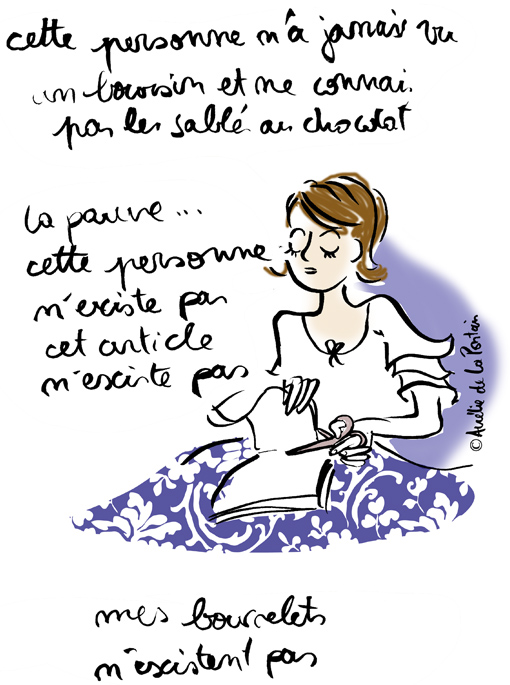 cette personne n'a jamais vu
un boursin et ne connai
pas les sablé au chocolat
la pauvre...
cette personne
n'existe pas
cet article
n'existe pas
© Aurélie de La Pontais
mes bourrelets
n'existent pas